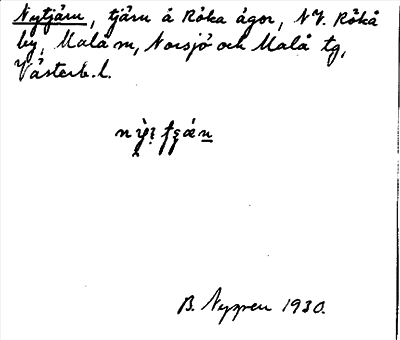 Nytjärn, tjärn å Röka ägor, NV. Rökå
by, Malå sn, Norsjö och Malå tg,
Västerb. l.
B. Nyppen 1930.